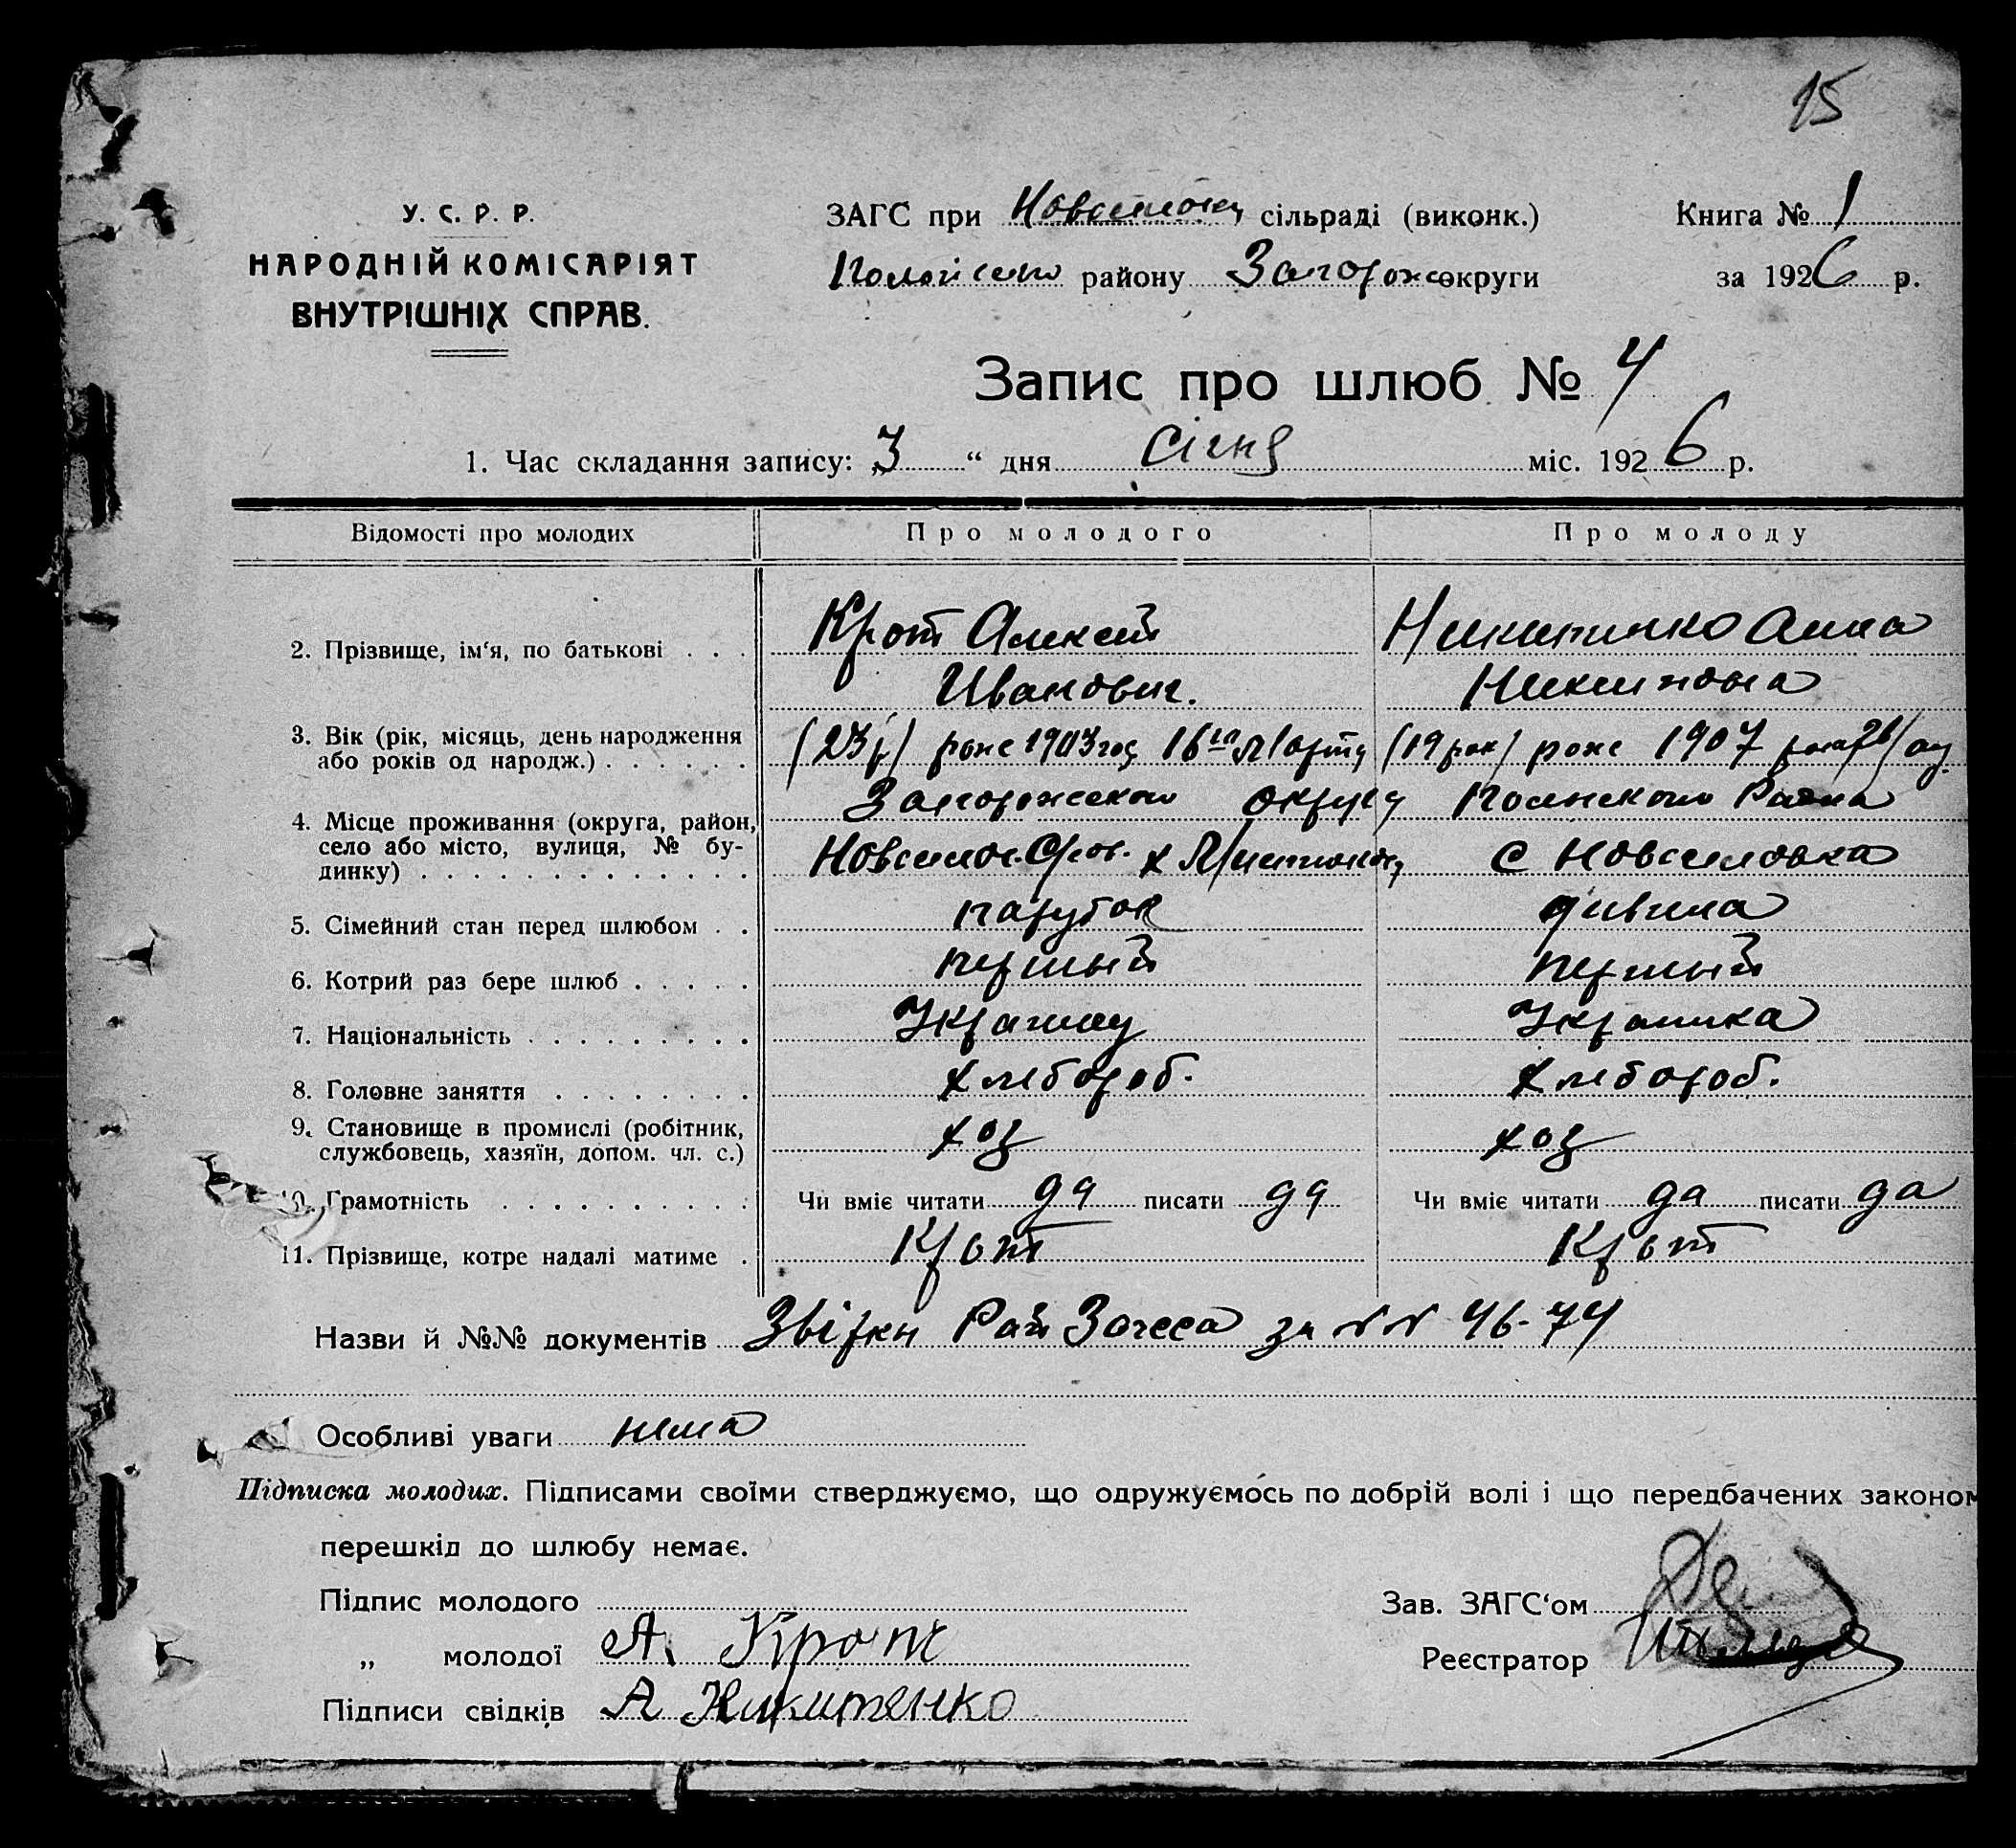 15
У. С. Р. Р.
НАРОДНІЙ КОМІСАРІЯТ
ВНУТРІШНІХ СПРАВ.
ЗАГС при сільраді (виконк.)
району Запорож округи
Книга № 1
за 1926 р.
Запис про шлюб № 4
1. Час складання запису: 3 “ дня Січня міс. 1926 р.
Відомості про молодих Про молодого Про молоду
2. Прізвище, ім‘я, по батькові . . . Крот Алексей Никитинко Анна
Иванович.
3. Вік (рік, місяць, день народження (23 р) 1903 год 16 Марта (19 рок) 1907
або років од народж.) . . . . . .
Запорожского округу Района
4. Місце проживання (округа, район,
село або місто, вулиця, № бу- с Новоселовка
динку) . . . . . . . . . . . . . .
5. Сімейний стан перед шлюбом . . парубок дивчина
6. Котрий раз бере шлюб . . . . . перший перший
7. Національність . . . . . . . . . Украинка
8. Головне заняття . . . . . . . . хлебороб. хлебороб.
9. Становище в промислі (робітник, хоз хоз
службовець, хазяїн, допом. чл. с.)
10. Грамотність . . . . . . . . . . Чи вміє читати да писати да Чи вміє читати да писати да
11. Прізвище, котре надалі матиме . Крот Крот
Назви й №№ документів Рай Загса за № № 46-74
Особливі уваги нема
Підписка молодих. Підписами своїми стверджуємо, що одружуємось по добрій волі і що передбачених законом
перешкід до шлюбу немає.
Підпис молодого
„ молодої А. Крот
Підписи свідків А Никитенко
Зав. ЗАГС‘ом
Реєстратор